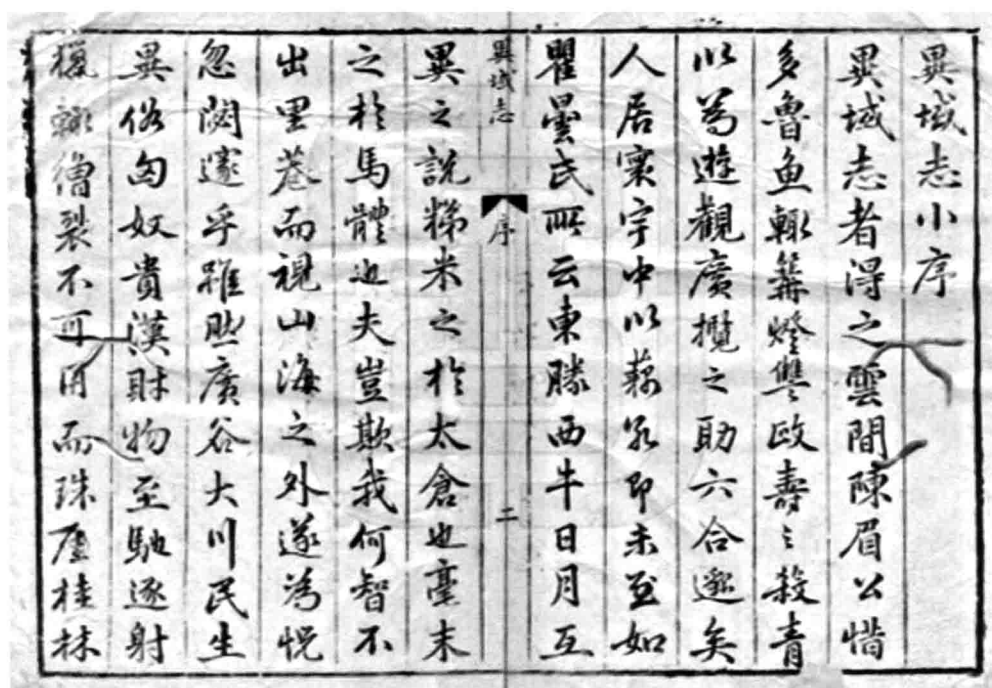 異域志小序
異域志者得之雲間陳眉公惜
多魯魚輙篝燈讐政壽之殺青
以為遊觀廣攬之助六合邈矣
人居寰宇中以藐然即未至如
瞿曇氏所云東勝西牛日月互
異域志
序
二
異之說稊米之於太倉也毫末
之於馬體也夫豈欺我何智不
出里巷而視山海之外遂為恍
忽闊邃乎雖然廣谷大川民生
異俗匈奴貴漢財物至馳逐射
獵輙繒裂不可用而珠崖桂林